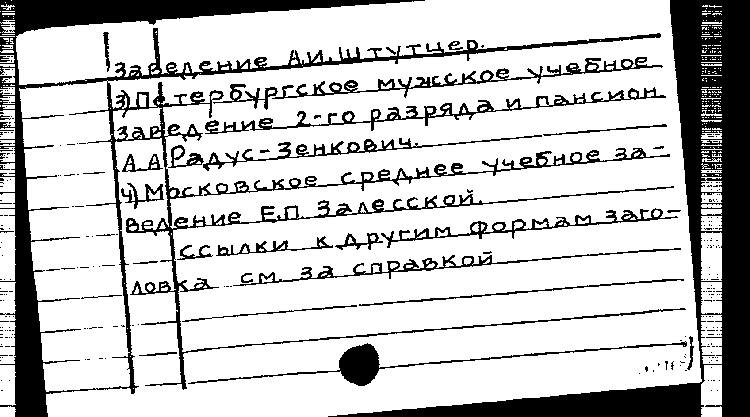 заведение А.И.Штутцер.
3) Петербургское мужское учебное
заведение 2-го разряда и пансион
А.А. Радус-Зенкович.
4) Московское среднее учебное за-
ведение Е.П. Залесской.
ссылки к другим формам заго-
ловка см. за справкой